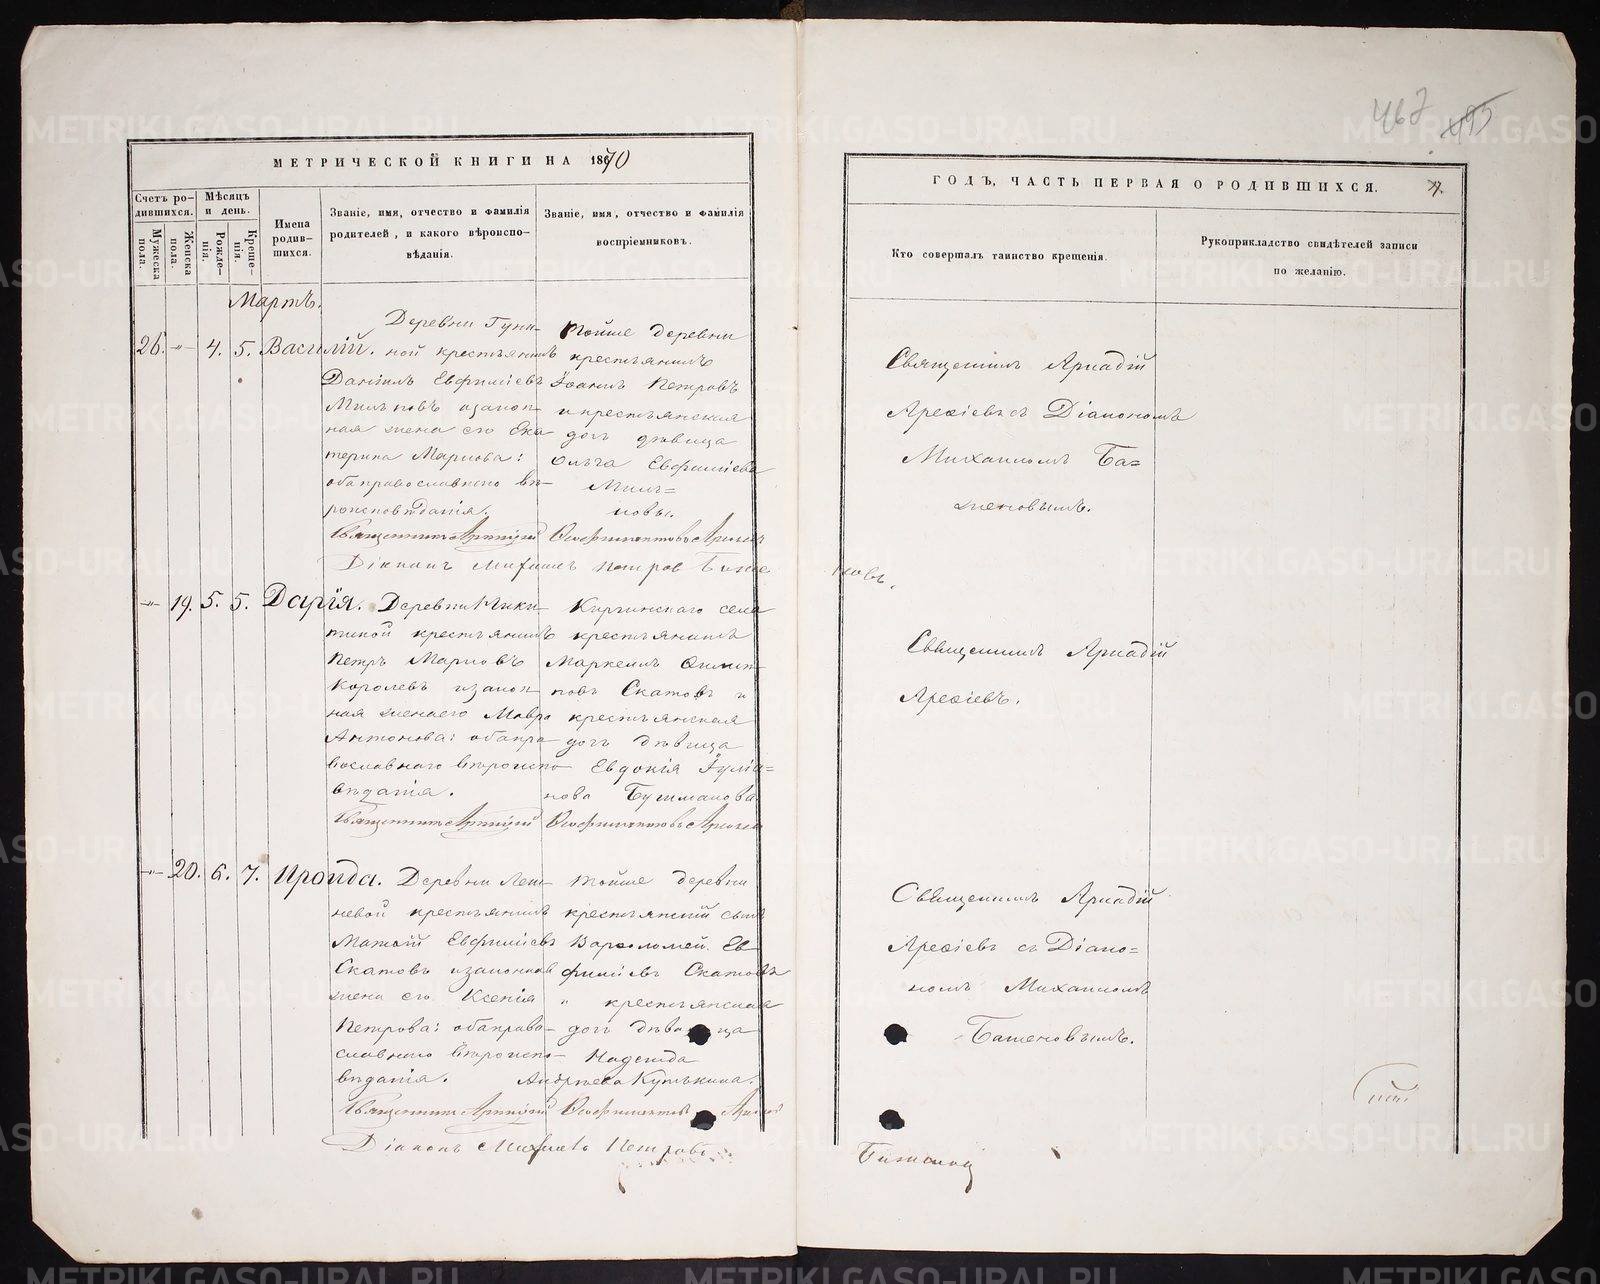 467 495
МЕТРИЧЕСКОЙ КНИГИ НА 1870
ГОДЪ, ЧАСТЬ ПЕРВАЯ О РОДИВШИХСЯ.
Счетъ родившихся.
Мужеска пола.
Женска пола.
Мѣсяцъ и день.
Рожденія.
Крещенія.
Имена родившихся.
Званіе, имя, отчество и фамилія родителей, и какого вѣроисповѣданія.
Званіе, имя, отчество и фамилія воспріемниковъ.
Кто совершалъ таинство крещенія.
Рукоприкладство свидѣтелей записи по желанію.
Мартъ.
26. -"- 4. 5. Василій.
Деревни
ной крестьянинъ
Даніилъ Евфиміевъ
Мильковъ и закон-
ная жена его Ека-
терина Маркова:
оба православнаго вѣ-
роисповѣданія.
Тойже деревни
крестьянинъ
Іоаннъ Петровъ
и крестьянская
дочь дѣвица
Ольга Евфиміева
Миль=
ковы.
Священникъ Аркадій
Арефіевъ съ Діакономъ
Михаиломъ Ба=
женовымъ.
Діаконъ Михаилъ Петров Баже
новъ.
-"- 19. 5. 5. Дарія.
Деревни
крестьянинъ
Петръ Марковъ
Королевъ и закон-
ная жена его Мавра
Антонова: оба пра-
вославнаго вѣроиспо-
вѣданія.
села
крестьянинъ
Маркеллъ
Скатовъ и
крестьянская
дочь дѣвица
Евдокія Іуліа=
нова Бушманова.
Священникъ Аркадій
Арефіевъ.
-"- 20. 6. 7. Ироида.
Деревни
невой крестьянинъ
Матѳій Евфиміевъ
Скатовъ и законная
жена его Ксенія
Петрова: оба право-
славнаго вѣроиспо-
вѣданія.
Тойже деревни
крестьянскій сынъ
Варѳоломей Ев
фиміевъ Скатовъ
и крестьянская
дочь дѣвица
Надежда
Андреева
Священникъ Аркадій
Арефіевъ съ Діако=
номъ Михаиломъ
Баженовымъ.
Діаконъ Михаилъ Петровъ
Баженов